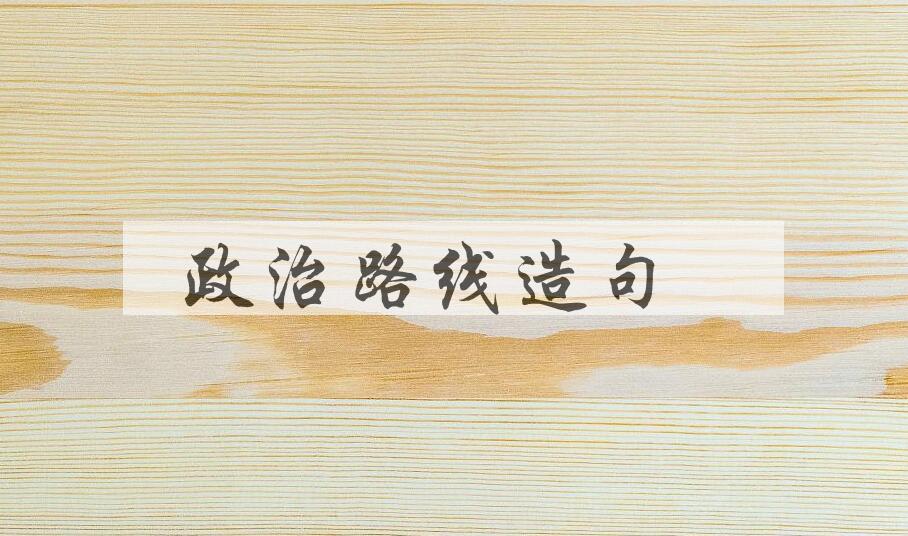 政治路线造句